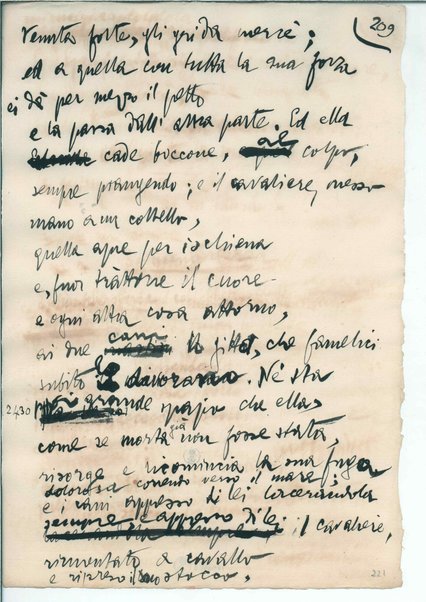 209
venuta forte, gli grida mercè;
ed a quella con tutta la sua forza
ei dà per mezzo il petto
e la passa dall'altra parte. Ed ella
cade boccone, al colpo,
sempre piangendo; e il cavaliere, messo
mano a un coltello,
quella apre per ischiena
e, fuor trattone il cuore
e ogni altra cosa attorno,
ai due cani lo gitta, che famelici
subito divorano. Né sta
2430 grande spazio che ella,
come se morta già non fosse stata,
risorge e ricomincia la sua fuga
dolorosa correndo verso il mare;
e i cani appresso di lei lacerandola
sempre e appresso di lei il cavaliere,
rimontato a cavallo
e ripreso stocco,
221